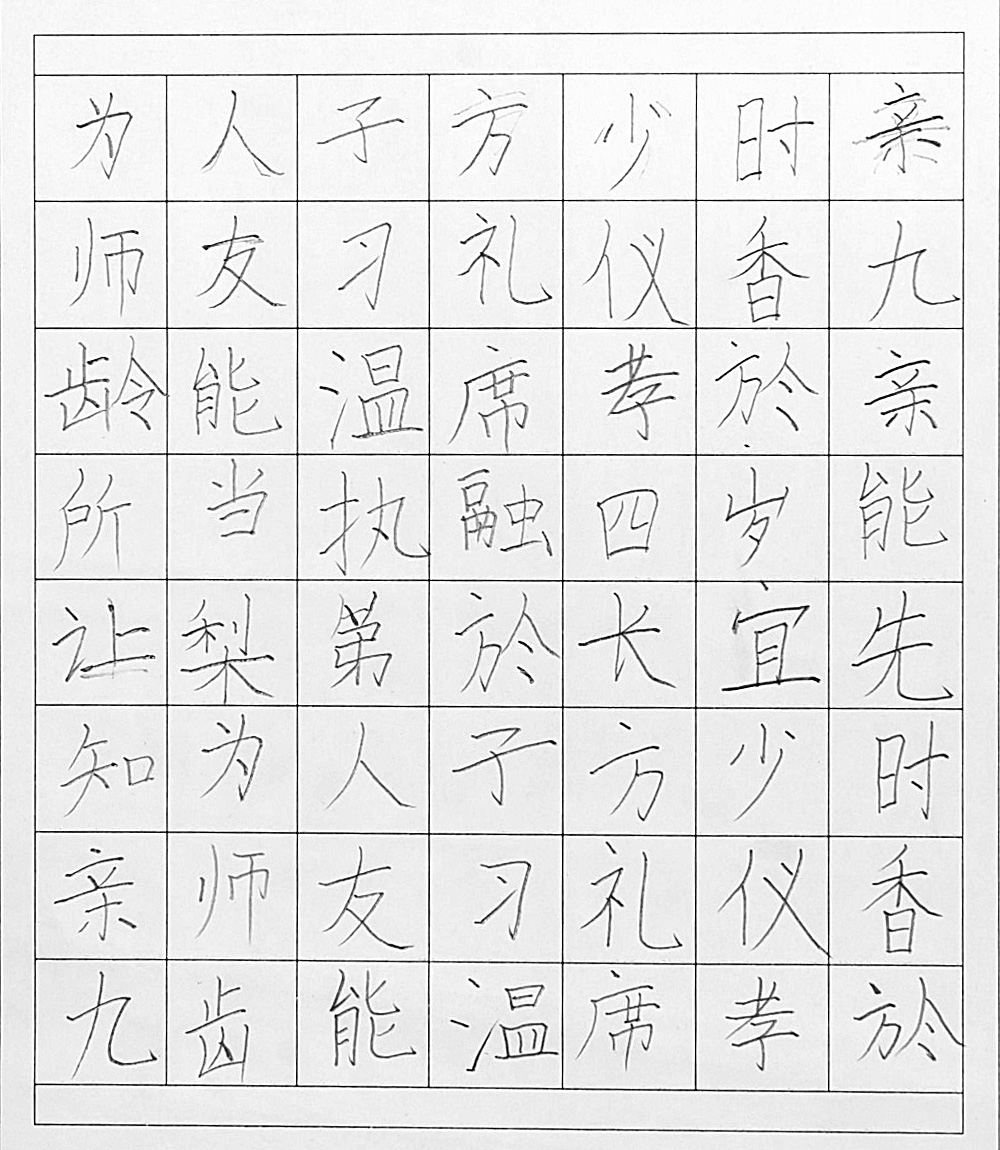 为人子方少时亲
师友习礼仪香九
龄能温席孝於亲
所当执融四岁能
让梨第於长宜先
知为人子方少时
亲师友习礼仪香
九齿能温席孝於